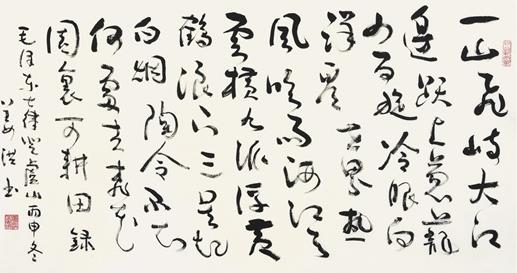 一山飛峙大江
邊跃上葱蘢
四百旋冷眼向
洋看世界热
風吹雨洒江天
雲横九派浮黄
鶴浪下三吴起
白烟陶令不知
何處去桃花
園裏可耕田 録
毛泽东七律登廬山丙申冬
洪书